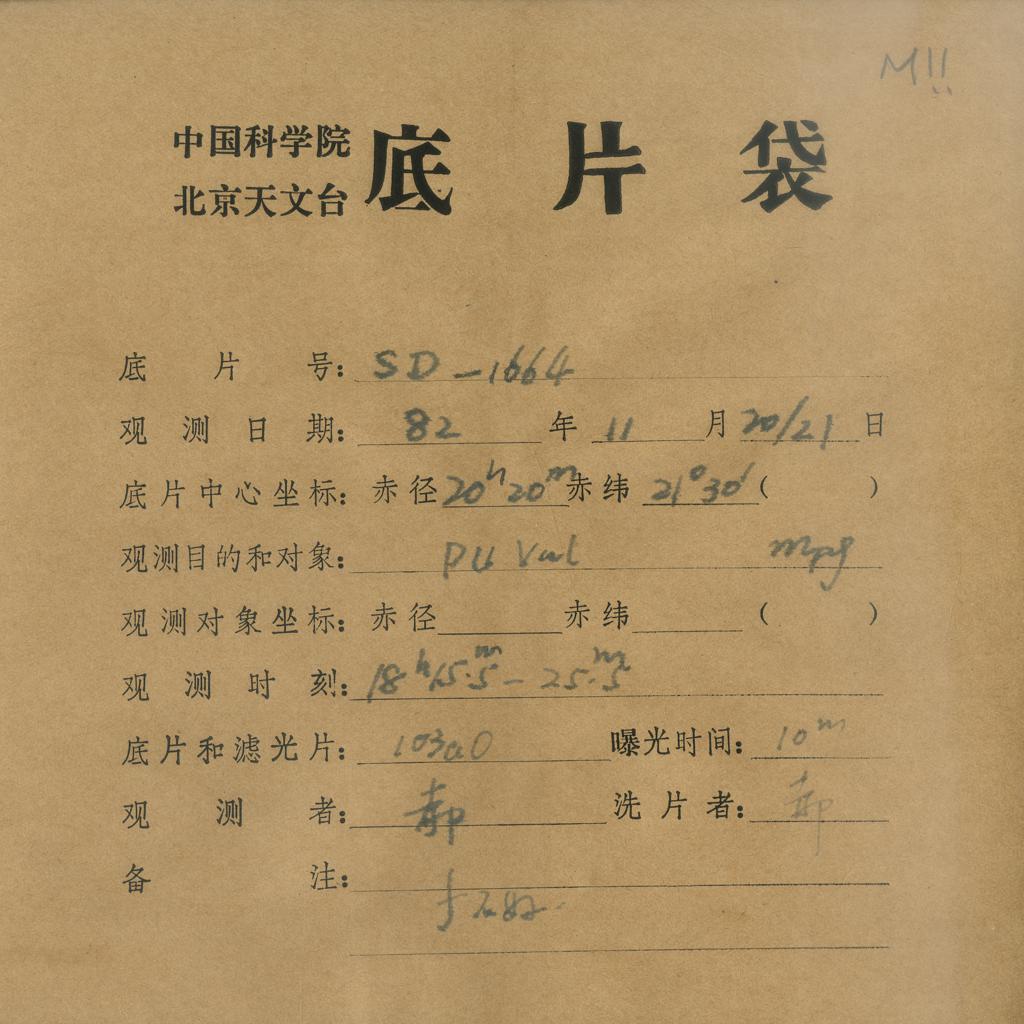 M11
中国科学院
北京天文台
底片袋
底片号: SD-1664
观测日期: 82 年 11 月 20/21 日
底片中心坐标: 赤径 20h20m 赤纬 21°30′ ( )
观测目的和对象: PU Vul mpg
观测对象坐标: 赤径 赤纬 ( )
观测时刻: 18h15.5m - 25.5m
底片和滤光片: 103aO 曝光时间: 10m
观测者: 郝 洗片者: 郝
备注: